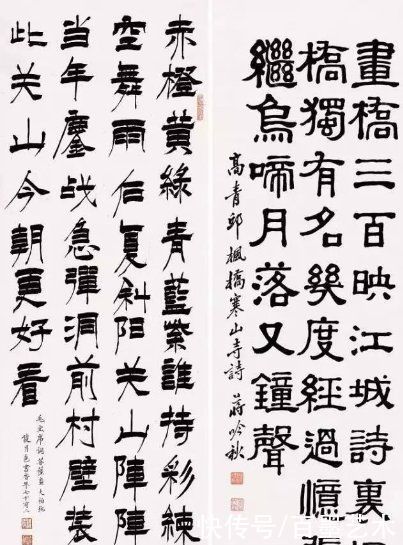 畫橋三百映江城詩裏
橋獨有名幾度經過憶
繼烏啼月落又鐘聲
高青邱楓橋寒山寺詩 蔣吟秋
赤橙黃綠青藍紫誰持彩練
空舞雨后复斜阳关山陣陣
當年鏖战急彈洞前村壁装
此关山今朝更好看
毛主席詞菩薩蠻大柏地
快传号/百